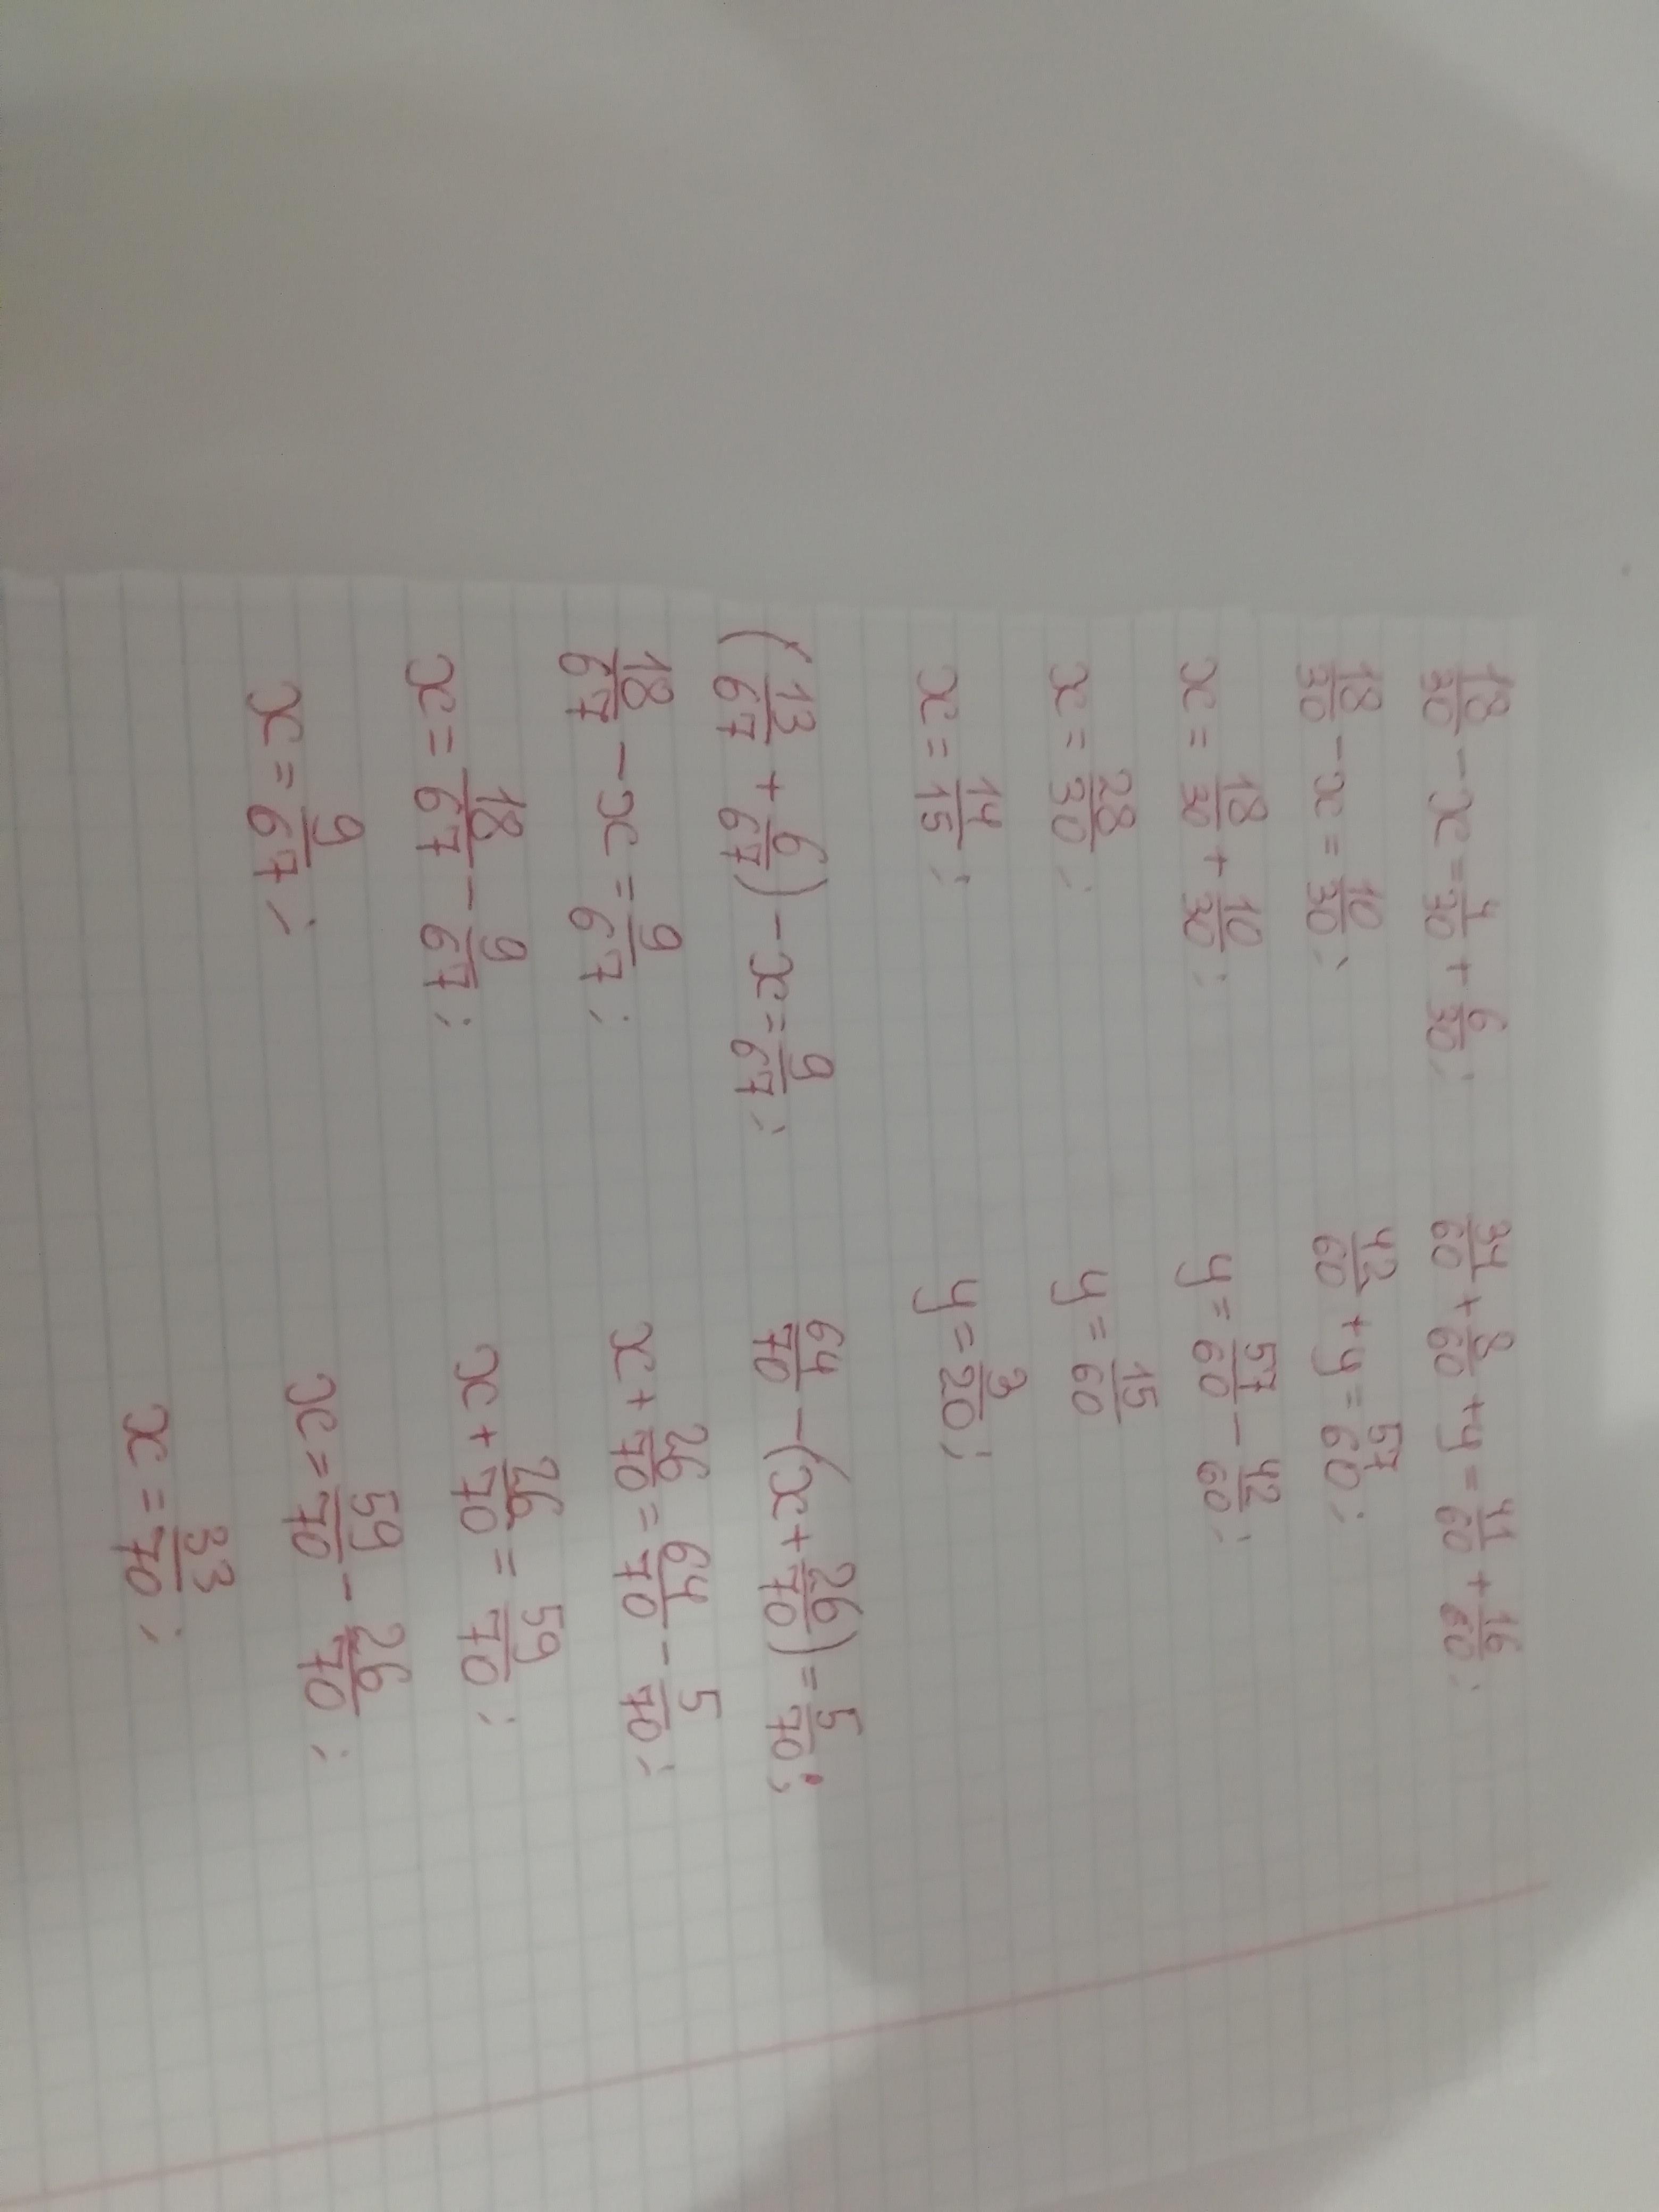 18/30 - x = 4/30 + 6/30;
18/30 - x = 10/30;
x = 18/30 + 10/30;
x = 28/30;
x = 14/15;
34/60 + 8/60 + y = 41/60 + 16/60;
42/60 + y = 57/60;
y = 57/60 - 42/60;
y = 15/60
y = 3/20;
(13/67 + 6/67) - x = 9/67;
18/67 - x = 9/67;
x = 18/67 - 9/67;
x = 9/67;
64/70 - (x + 26/70) = 5/70;
x + 26/70 = 64/70 - 5/70;
x + 26/70 = 59/70;
x = 59/70 - 26/70;
x = 33/70;